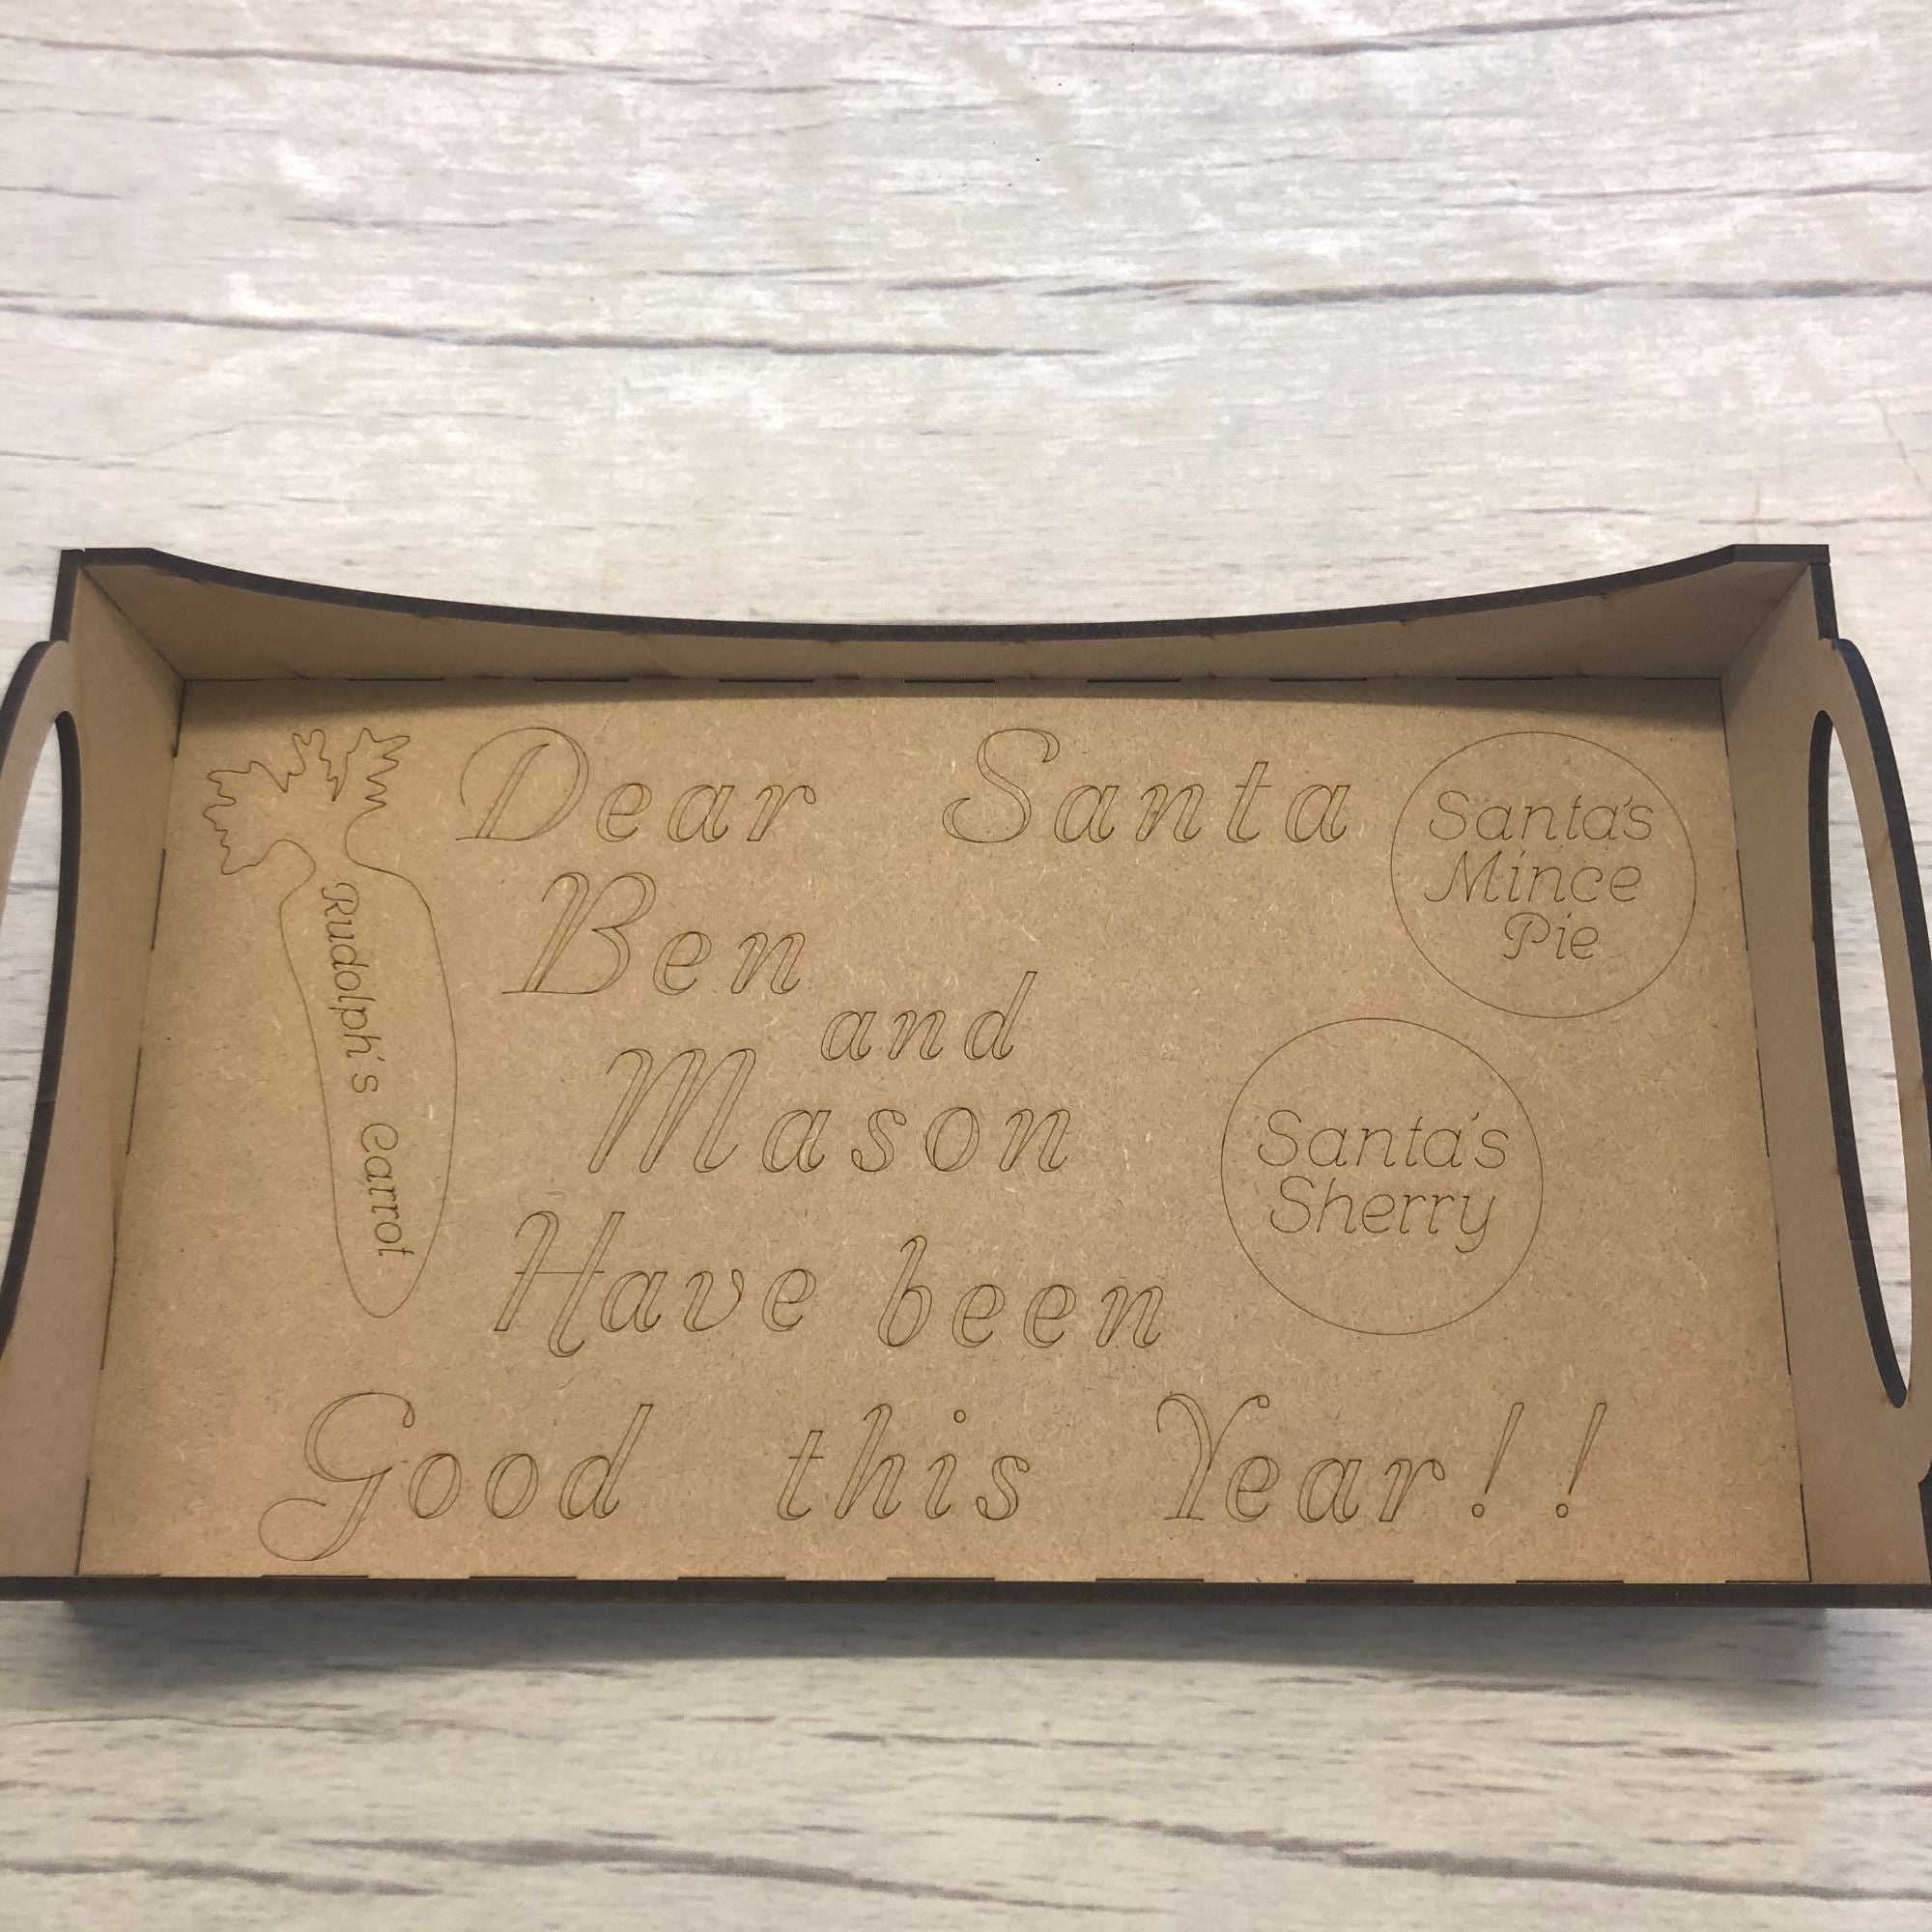 Dear Santa
Ben
and
Mason
Have been
Good this Year!!
Rudolph's Carrot
Santa's
Mince
Pie
Santa's
Sherry